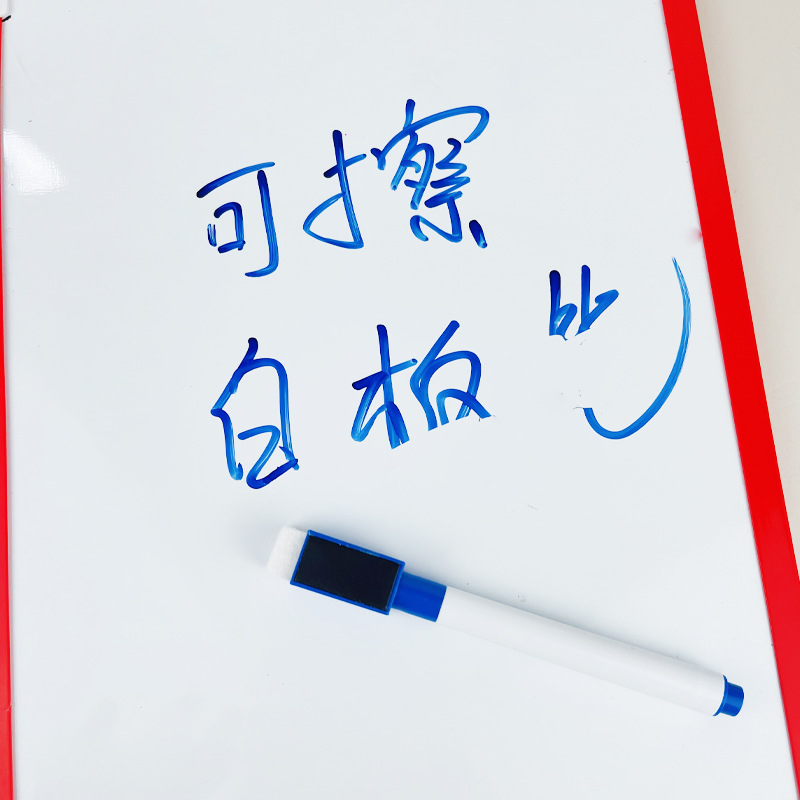 可擦
白板